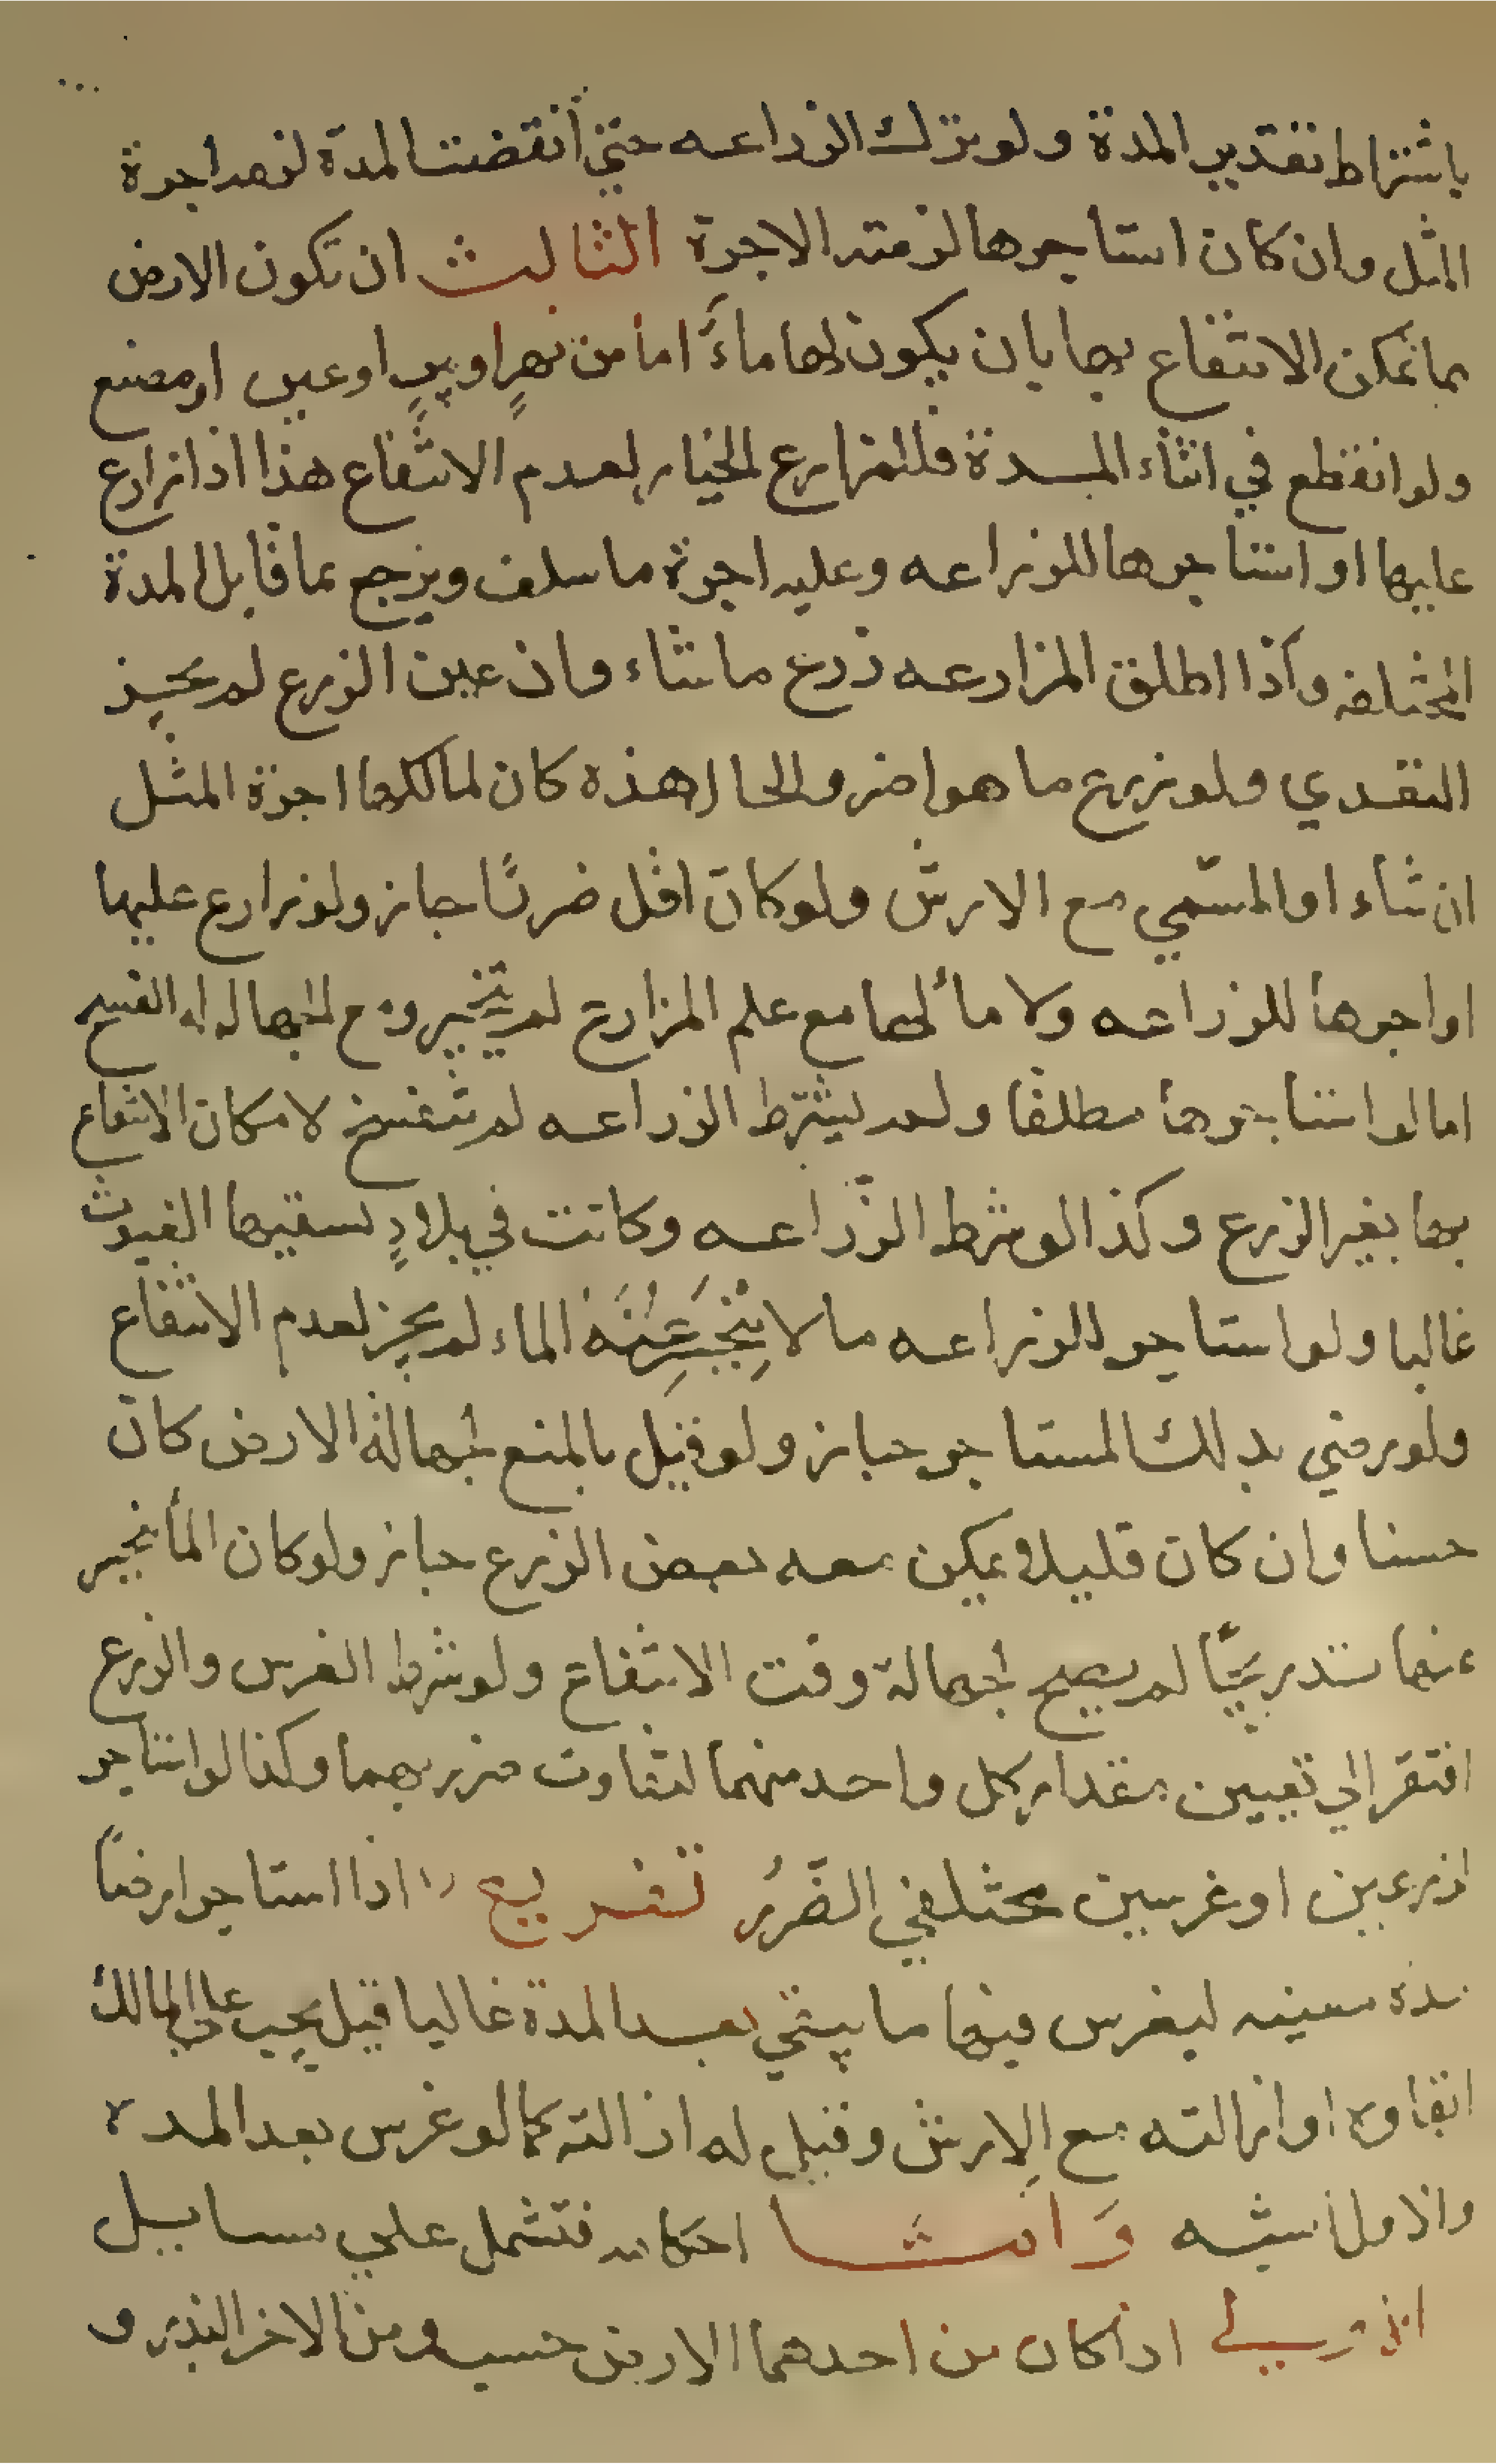 باشتراط تقدير المدة ولو ترك الزراعه حتي أنقضت المدة لزمه اجرة
المثل وان كان استاجرها لزمته الاجرة الثالث ان تكون الارض
مما يمكن الانتفاع بها بان يكون لها ماءً اما من نهرٍ او بيرٍ او عين او مصنع
ولو انقطع في اثناء المدة فللمزارع الخيار لعدم الانتفاع هذا اذا زارع
عليها او استاجرها للزراعه وعليه اجرة ما سلف ويرجع بما قابل المدة
المختلفه وأذا اطلق المزارعه زرع ما شاء وان عين الزرع لم يجز
التعدي ولو زرع ما هو اضر والحال هذه كان لمالكها اجرة المثل
ان شاء او المسّمي مع الارش ولو كان اقل ضررًا جاز ولو زارع عليها
او اجرها للزراعه ولا مأ لها مع علم المزارع لم يتخير ومع الجهاله له الفسخ
اما لو استاجرها مطلقا ولم يشترط الزراعه لم تنفسخ لامكان الانتفاع
بها بغير الزرع وكذا لو شرط الزّراعه وكانت في بلادٍ تسقيها الغيوث
غالبا ولو استاجر للزراعه ما لا يَنْحَسِرُ عَنْهُ الماء لم يجز لعدم الانتفاع
ولو رضي بذلك المستاجر جاز ولو قيل بالمنع لجهالة الارض كان
حسنا وان كان قليلا يمكن معه بعض الزرع جاز ولو كان المأ ينحسر
عنها تدريجيًّا لم يصح لجهالة وقت الانتفاع ولو شرط الغرس والزرع
افتقر الي تعيين مقدار كل واحد منهما لتفاوت ضرريهما وكذا لو استاجر
لزرعين او غرسين مختلفي الضّرر تفريع اذا استاجر ارضًا
مدة معينه ليغرس فيها ما يبقي بعد المدة غالبا قيل يجب علي المالك
ابقاوه او ازالته مع الارش وقيل له ازالته كما لو غرس بعد المدة
والاول اشبه وَامّا احكامه فتشتمل علي مسايل
اذا كان من احدهما الارض حسب ومن الاخر البذر و